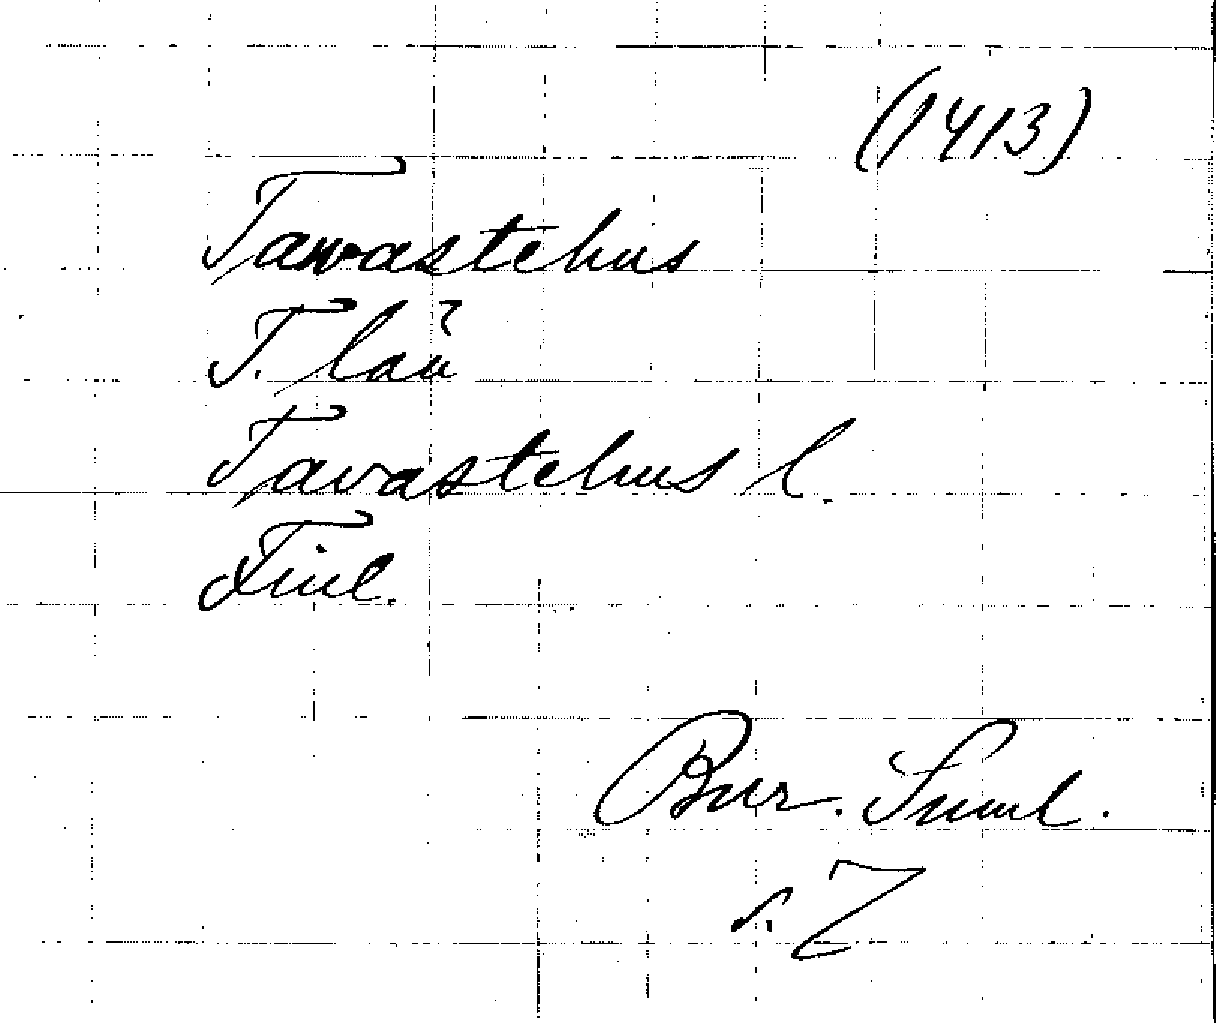 (1413)
Tawastehus
T. län
Tavastehus l.
Finl.
Bur. Suml.
s. 7